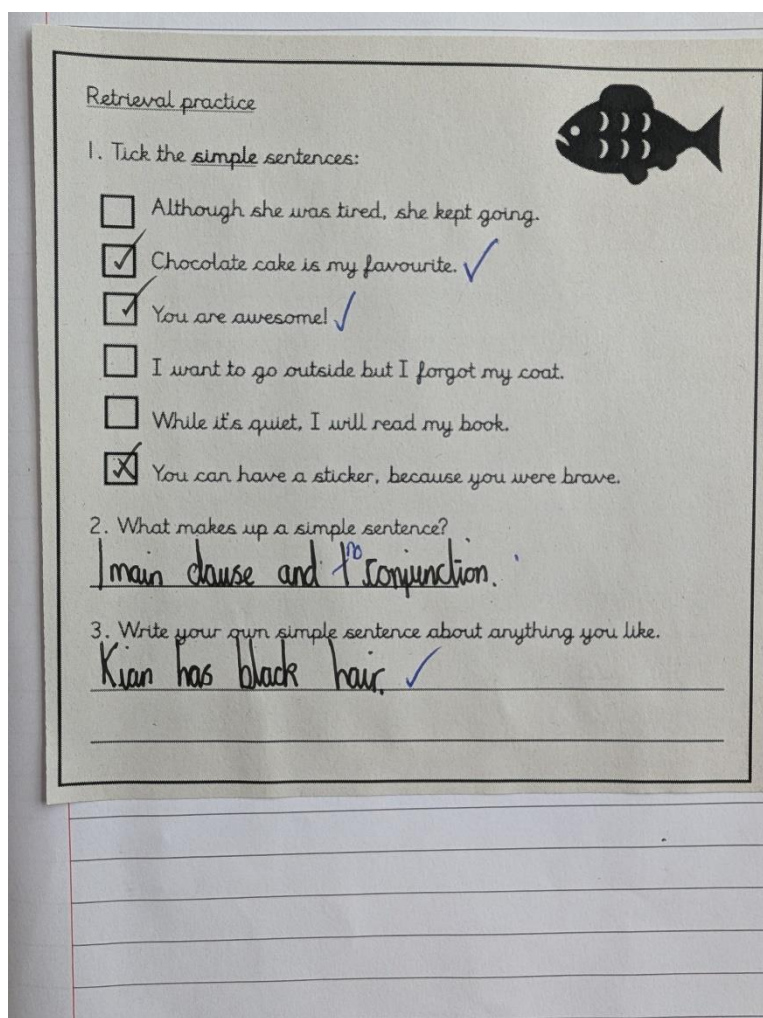 Retrieval practice
1. Tick the simple sentences:
Although she was tired, she kept going.
Chocolate cake is my favourite.
You are awesome!
I want to go outside but I forgot my coat.
While it's quiet, I will read my book.
You can have a sticker, because you were brave.
2. What makes up a simple sentence?
1 main clause and 1 no conjunction.
3. Write your own simple sentence about anything you like.
Kian has black hair.